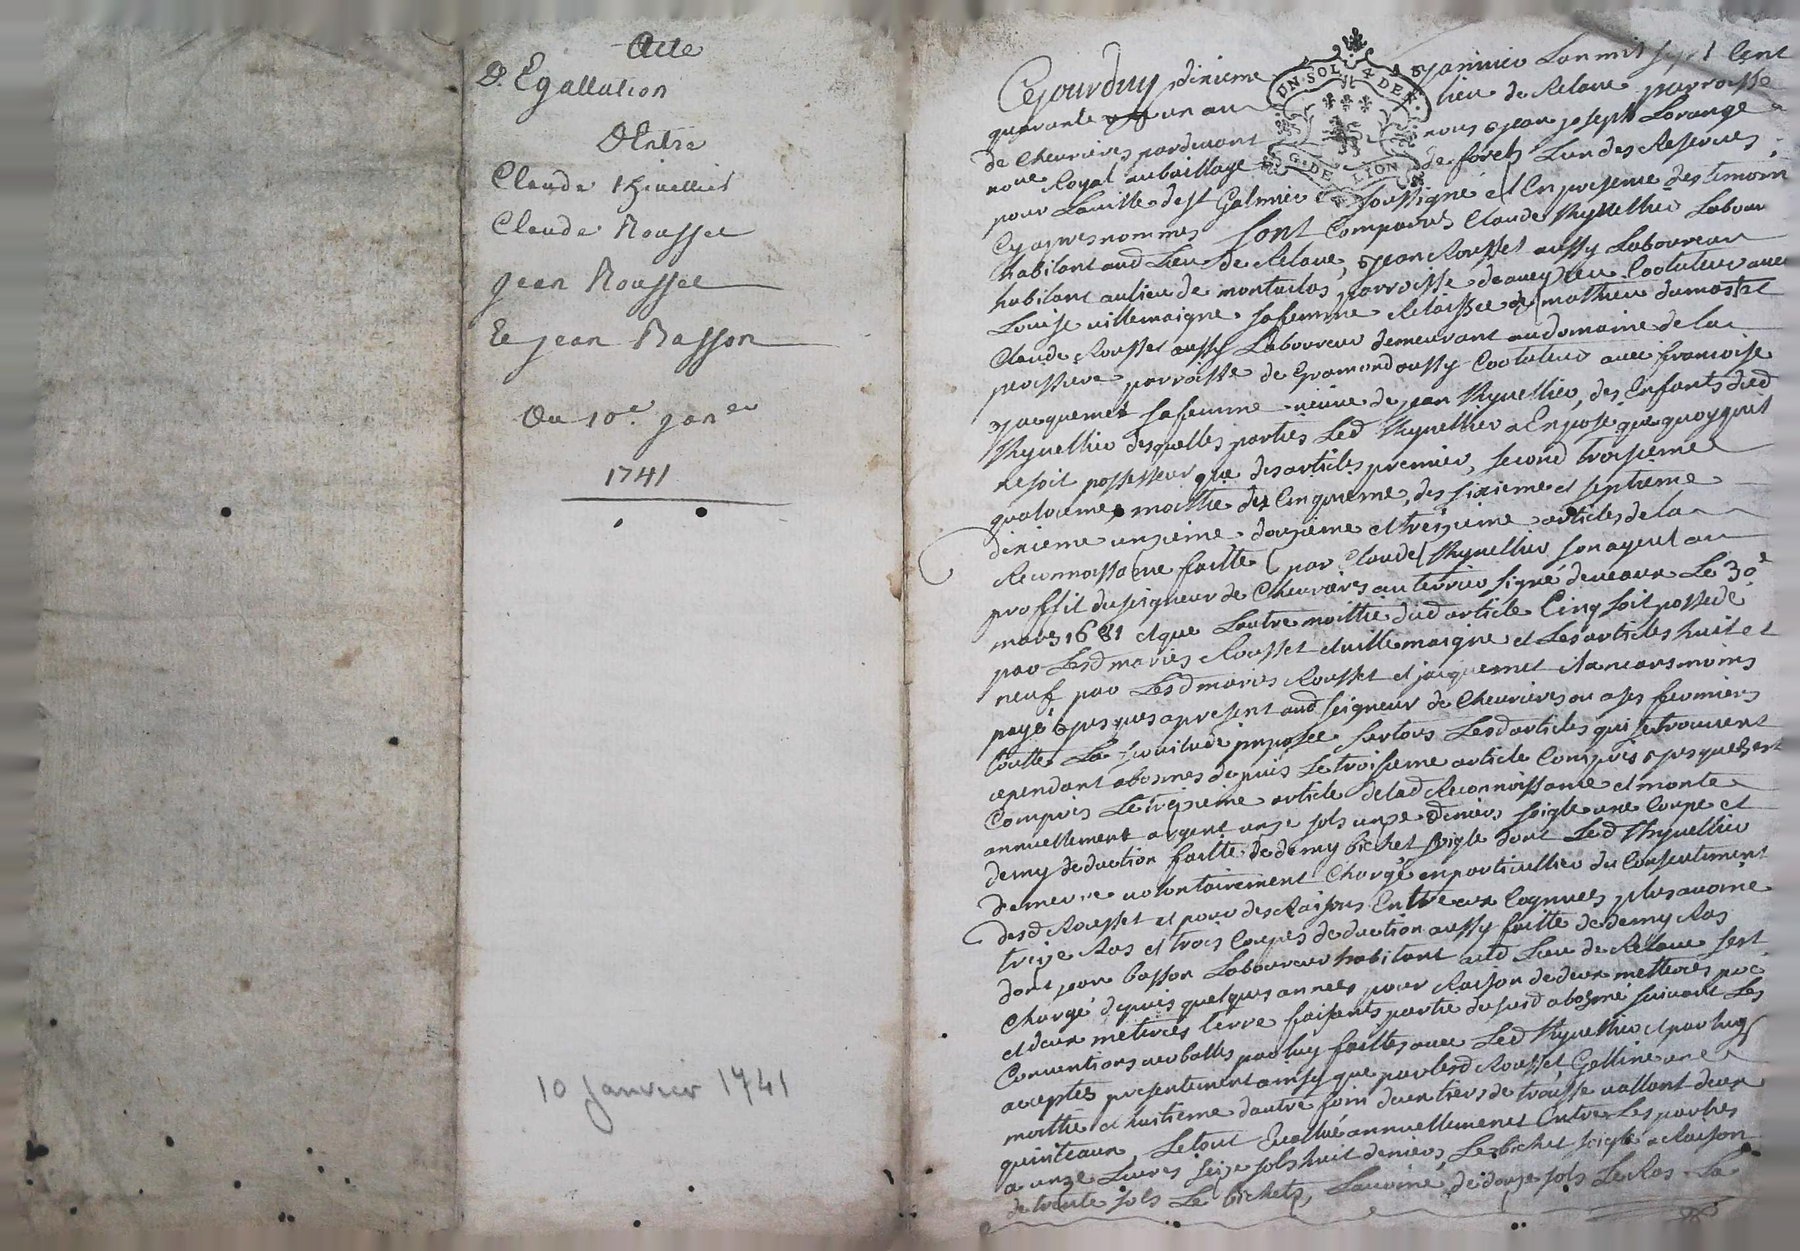 Acte
D'Egallation
D'Entre
Claude thivellier
Claude Rousset
Jean Rousset
Et jean Basson
Du 10e. janer
1741
10 Janvier 1741
UN SOL 4 DEN.
G. DE LION
Cejourdhuy dixieme janvier Lan mil sept Cent
quarante un au lieu de Relave parroisse
de Chevrieres pardevant nous jean joseph Lorange
noere Royal aubaillage de forets Lun des Reserves
pour Laville de st Galmier soussigné et En presence des temoins
Cy apres nommés sont Comparus Claude thyvellier Labour
habitant aud Lieu de Relave, jean Rousset aussy Laboureur
habitant au lieu de parroisse daveyzieu Cotuteur avec
Louise villemaigne sa femme Relaissée de mathieu
Claude Rousset aussy Laboureur demeurant au domaine de la
parroisse de Gramond aussy Cotuteur avec francoise
jacquemet sa femme veuve de jean thyvellier, des Enfants dud
thyvellier desquelles parties Led thyvellier a Exposé que quoyquil
ne soit possesseur que des articles premier, second troisieme
quatrieme, moittié du Cinquieme, des sixieme et septieme
dixieme unzieme douzieme et treizieme articles de la
Reconnoissance faitte par Claude thyvellier son ayeul au
proffit du seigneur de Chevrieres au terrier signé deveaux Le 30e
mars 1681 et que Lautre moittié dud article Cinq soit possedé
par Lesd mariés Rousset et villemaigne et Les articles huit et
neuf par Lesd mariés Rousset et jacquemet il a neansmoins
payé jusques apresent aud seigneur de Chevrieres ou a ses fermiers
toutte La servitude imposée sur tous Lesd articles qui se trouvent
cependant abonnés depuis Le troisieme article Compris jusques et
Compris Le treizieme article de lad Reconnoissance et monte
annuellement argent unze sols unze deniers soigle une Coupe et
demy deduction faitte de demy bichet soigle dont Led thyvellier
demeure volontairement Chargé en particullier du Consentement
desd Rousset et pour des Raisons Entre eux Connues plus avoine
treize Ras et trois Coupes deduction aussy faitte de demy Ras
dont jean basson Laboureur habitant aud Lieu de Relave sest
Chargé depuis quelques années pour Raison de deux metterées pré
et deux metterées terre faisants partie du susd abonné suivant Les
Conventions verballes par luy faittes avec Led thyvellier et par luy
acceptés presentement ainsy que par lesd Rousset, Gelline une
moittié et huitieme dautre foin deux tiers de trousse vallant deux
quinteaux, Le tout Evallué annuellement Entre Les parties
a unze Livres seize sols huit deniers, Le bichet soigle a Raison
de trente sols Le bichet, Lavoine de douze sols Le Ras La